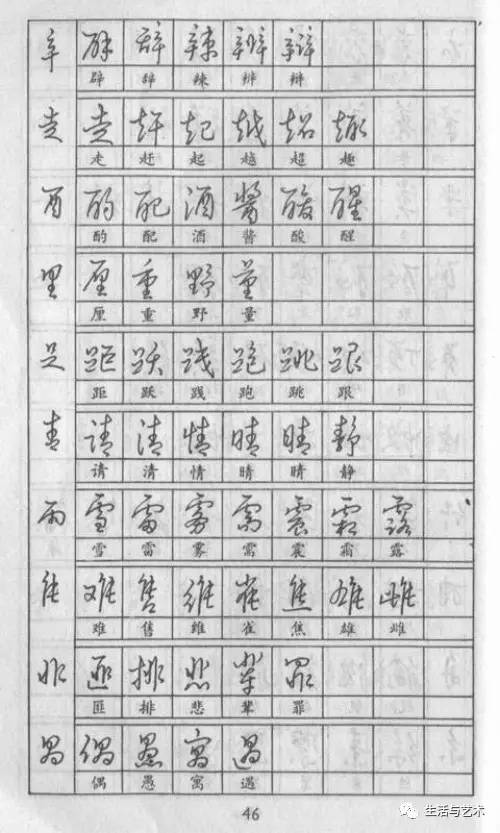 辛 辟 辞 辣 辨 辩
辟 辞 辣 辨 辩
走 走 赶 起 越 超 趣
走 赶 起 越 超 趣
酉 酌 配 酒 酱 酸 醒
酌 配 酒 醬 酸 醒
里 厘 重 野 量
厘 重 野 量
足 距 跃 践 跑 跳 跟
距 跃 践 跑 跳 跟
青 请 清 情 晴 睛 静
请 清 情 晴 睛 静
雨 雪 雷 雾 需 震 霜 露
雪 雷 雾 需 震 霜 露
隹 难 售 维 雀 焦 雄 雌
难 售 维 雀 焦 雄 雌
非 匪 排 悲 辈 罪
匪 排 悲 辈 罪
禺 偶 愚 寓 遇
偶 愚 寓 遇
46
生活与艺术